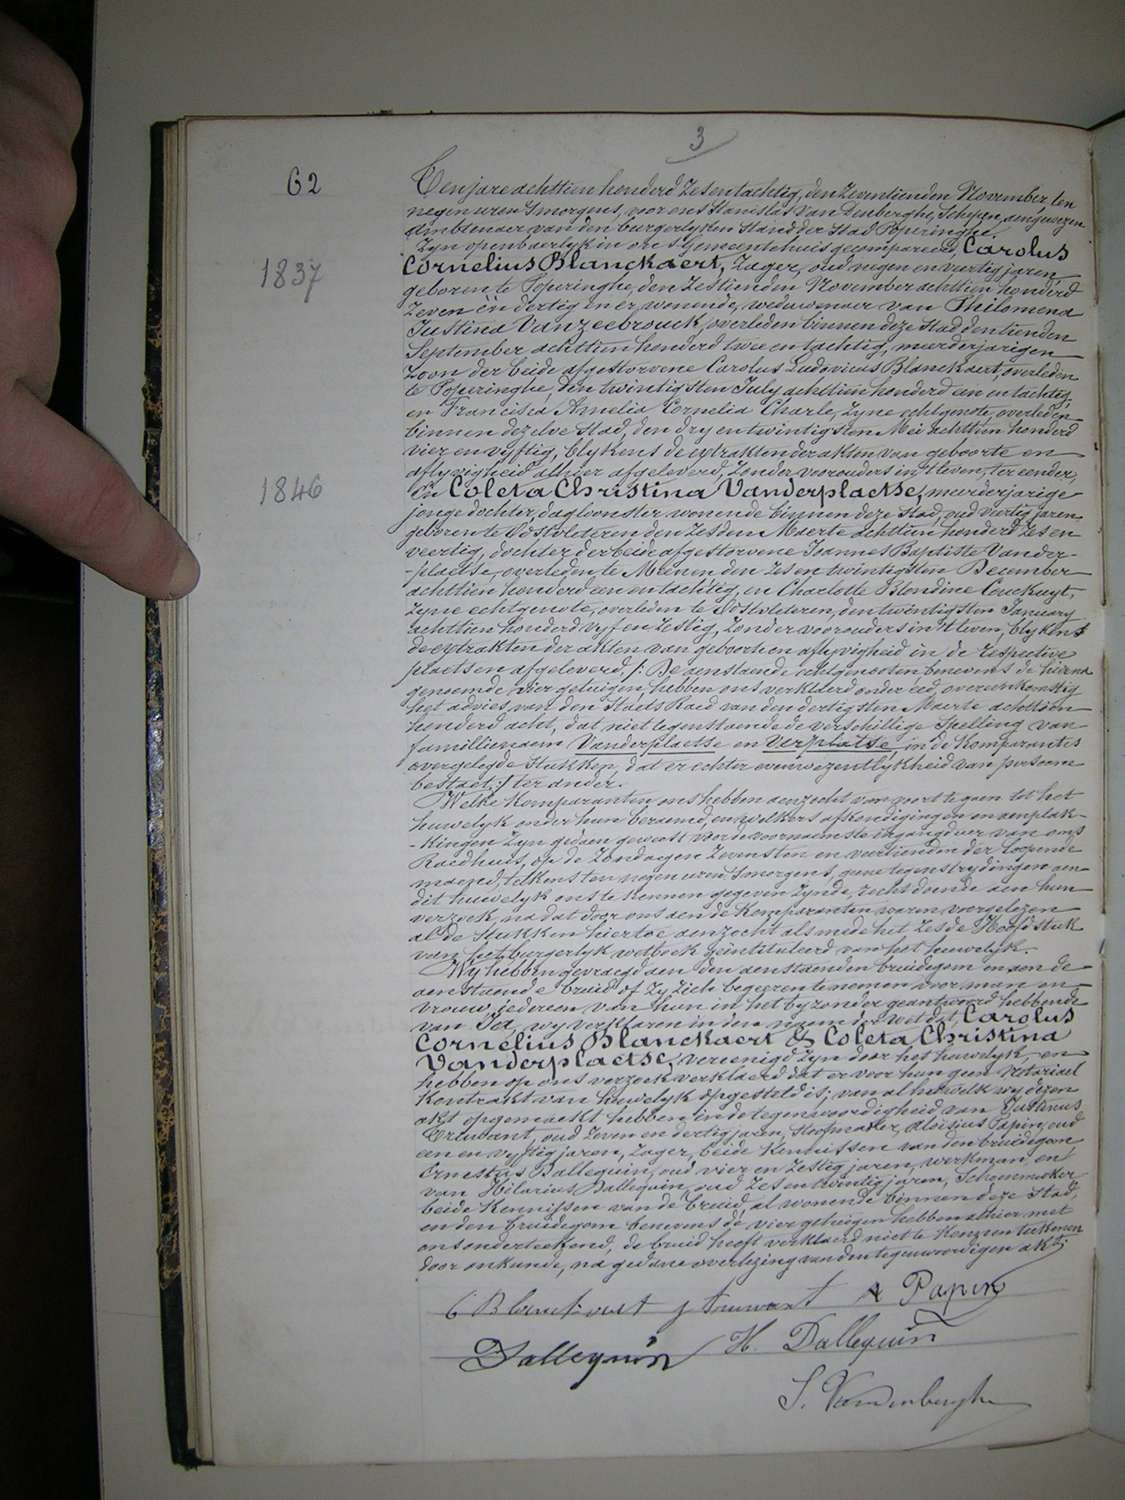 3
62
Ten jare achttien honderd zes en tachtig, den zeventienden November, ten
negen uren 's morgens, voor ons Stanislas Van Denberghe, Schepen, aengewezen
ambtenaer van den burgerlyken stand der Stad Poperinghe.
Zyn openbaerlyk in ons gemeentehuis gecompareerd, Carolus
1837
Cornelius Blanckaert, Zager, oud negen en veertig jaren,
geboren te Poperinghe, den zestienden November achttien honderd
zeven en dertig en er wonende, weduwenaer van Philomena
Justina Vanzeebrouck, overleden binnen deze stad den tienden
September achttien honderd twee en tachtig, meerderjarigen
zoon der beide afgestorvene Carolus Ludovicus Blanckaert, overleden
te Poperinghe, den twintigsten July achttien honderd een en tachtig,
en Francisca Amelia Cornelia Charle, zyne echtgenote, overleden
binnen dezelve stad, den dry en twintigsten Mei achttien honderd
vier en vyftig, blykens de extrakten der akten van geboorte en
aflyvigheid alhier afgeleverd, zonder voorouders in 't leven, ter eender,
1846
En Coleta Christina Vanderplaetse, meerderjarige
jonge dochter, dagloonster wonende binnen deze stad, oud veertig jaren,
geboren te Oostvleteren den zesden Maerte achttien honderd zes en
veertig, dochter der beide afgestorvene Joannes Baptiste Vander-
-plaetse, overleden te Meenen den zes en twintigsten December
achttien honderd een en tachtig, en Charlotte Blondine Couckuyt,
zyne echtgenote, overleden te Oostvleteren, den twintigsten January
achttien honderd vyf en zestig, zonder voorouders in 't leven, blykens
de extrakten der akten van geboorte en aflyvigheid in de respective
plaetsen afgeleverd /: De aenstaende echtgenooten, benevens de hierna
genoemde vier getuigen, hebben ons verklaerd onder eed, overeenkomstig
het advies van den Staets Raed van den dertigsten Maerte achttien
honderd acht, dat niettegenstaende de verschillige spelling van
familienaem Vanderplaetse en Verplatse, in de komparantes
overgelegde stukken, dat er echter eenwezentlykheid van persoon
bestaet :/ ter ander.
Welke komparanten ons hebben aenzocht van voort te gaen tot het
huwelyk onder hun beraemd, en welkers afkondigingen en aenplak-
-kingen zyn gedaen geweest voor de voornaemste ingangdeur van ons
Raedhuis, op de Zondagen zevensten en veertienden der loopende
maend, telkens ten negen uren 's morgens, geene tegenstrydingen aen
dit huwelyk ons te kennen gegeven zynde, rechtdoende aen hun
verzoek, na dat door ons aen de komparanten waren voorgelezen
al de stukken hiertoe aenzocht als mede het zesde Hoofdstuk
van het burgerlyk wetboek geintituleerd van het huwelyk.
Wy hebben gevraegd aen den aenstaenden bruidegom en aen de
aenstaende bruid of zy zich begeeren te nemen voor man en
vrouw, iedereen van hun in het byzonder geantwoord hebbende
van Ja, wy verklaren in den naem der wet dat, Carolus
Cornelius Blanckaert & Coleta Christina
Vanderplaetse, vereenigd zyn door het huwelyk, en
hebben op ons verzoek verklaerd dat er voor hun geen Notariael
kontrakt van huwelyk opgesteld is; van al hetwelk wy dezen
akt opgemaekt hebben in de tegenwoordigheid van Justinus
Truwant, oud zeven en dertig jaren, Aloisius Papin, oud
een en vyftig jaren, zager, beide kennissen van den bruidegom
Ernestus Dallequin, oud vier en zestig jaren, werkman, en
van Hilarius Dallequin, oud zes en twintig jaren, schoenmaker
beide kennissen van de bruid, al wonende binnen deze stad,
en den bruidegom benevens de vier getuigen hebben alhier met
ons onderteekend, de bruid heeft verklaerd niet te konnen teekenen
door onkunde, na gedane overlezing van den tegenwoordigen akt.
C Blanckaert J Truwant A Papin
Dallequin H. Dallequin
S. Vandenberghe